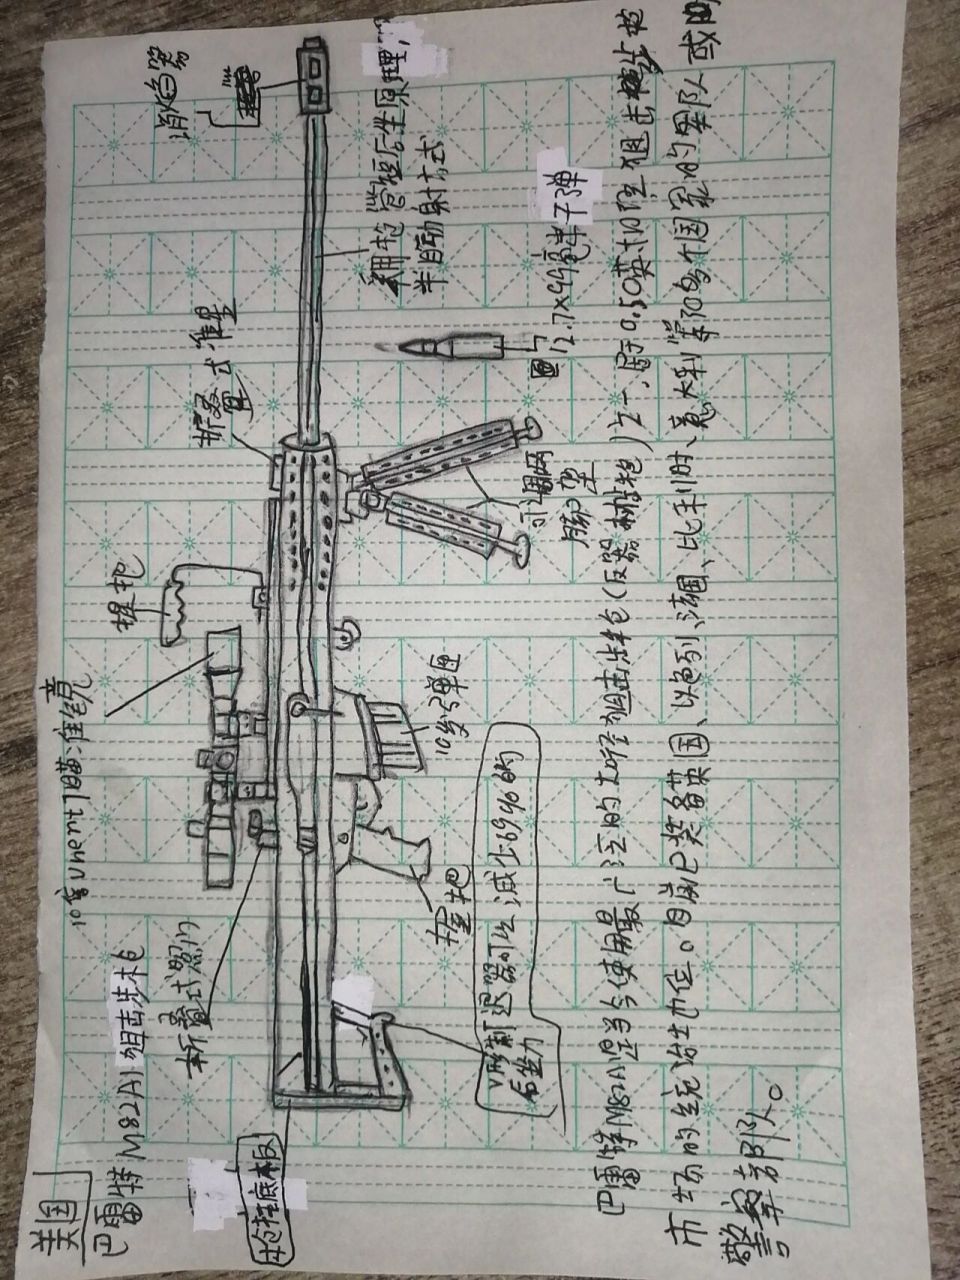 美国
巴雷特M82A1狙击步枪
10倍Unertl瞄准镜
握把
折叠式准星
置
消焰器
采用枪管短后坐原理,
半自动射方式
折叠式照门
枪托底板
10发弹匣
握把
可调两
脚架
12.7×99毫米子弹
V形制退器可以减少69%的
后坐力
巴雷特M82A1是当今使用最广泛的大口径狙击步枪(反器材步枪)之一,居于0.50英寸口径狙击步枪
市场的统治地位。目前已装备英国、以色列、法国、比利时、意大利等30多个国家的军队或
警察部队。